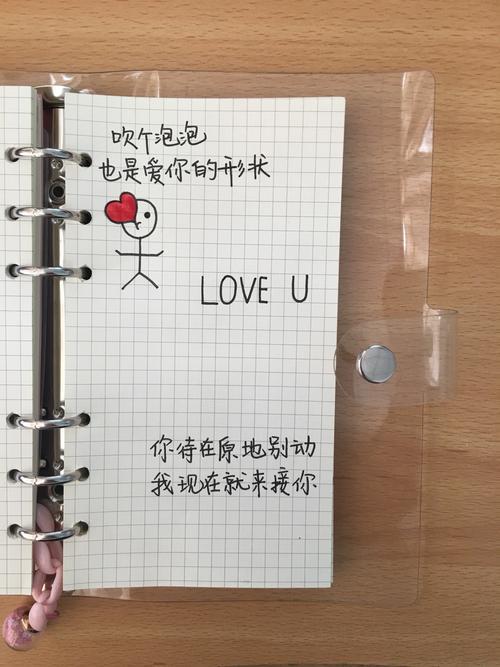 吹个泡泡
也是爱你的形状
LOVE U
你待在原地别动
我现在就来接你